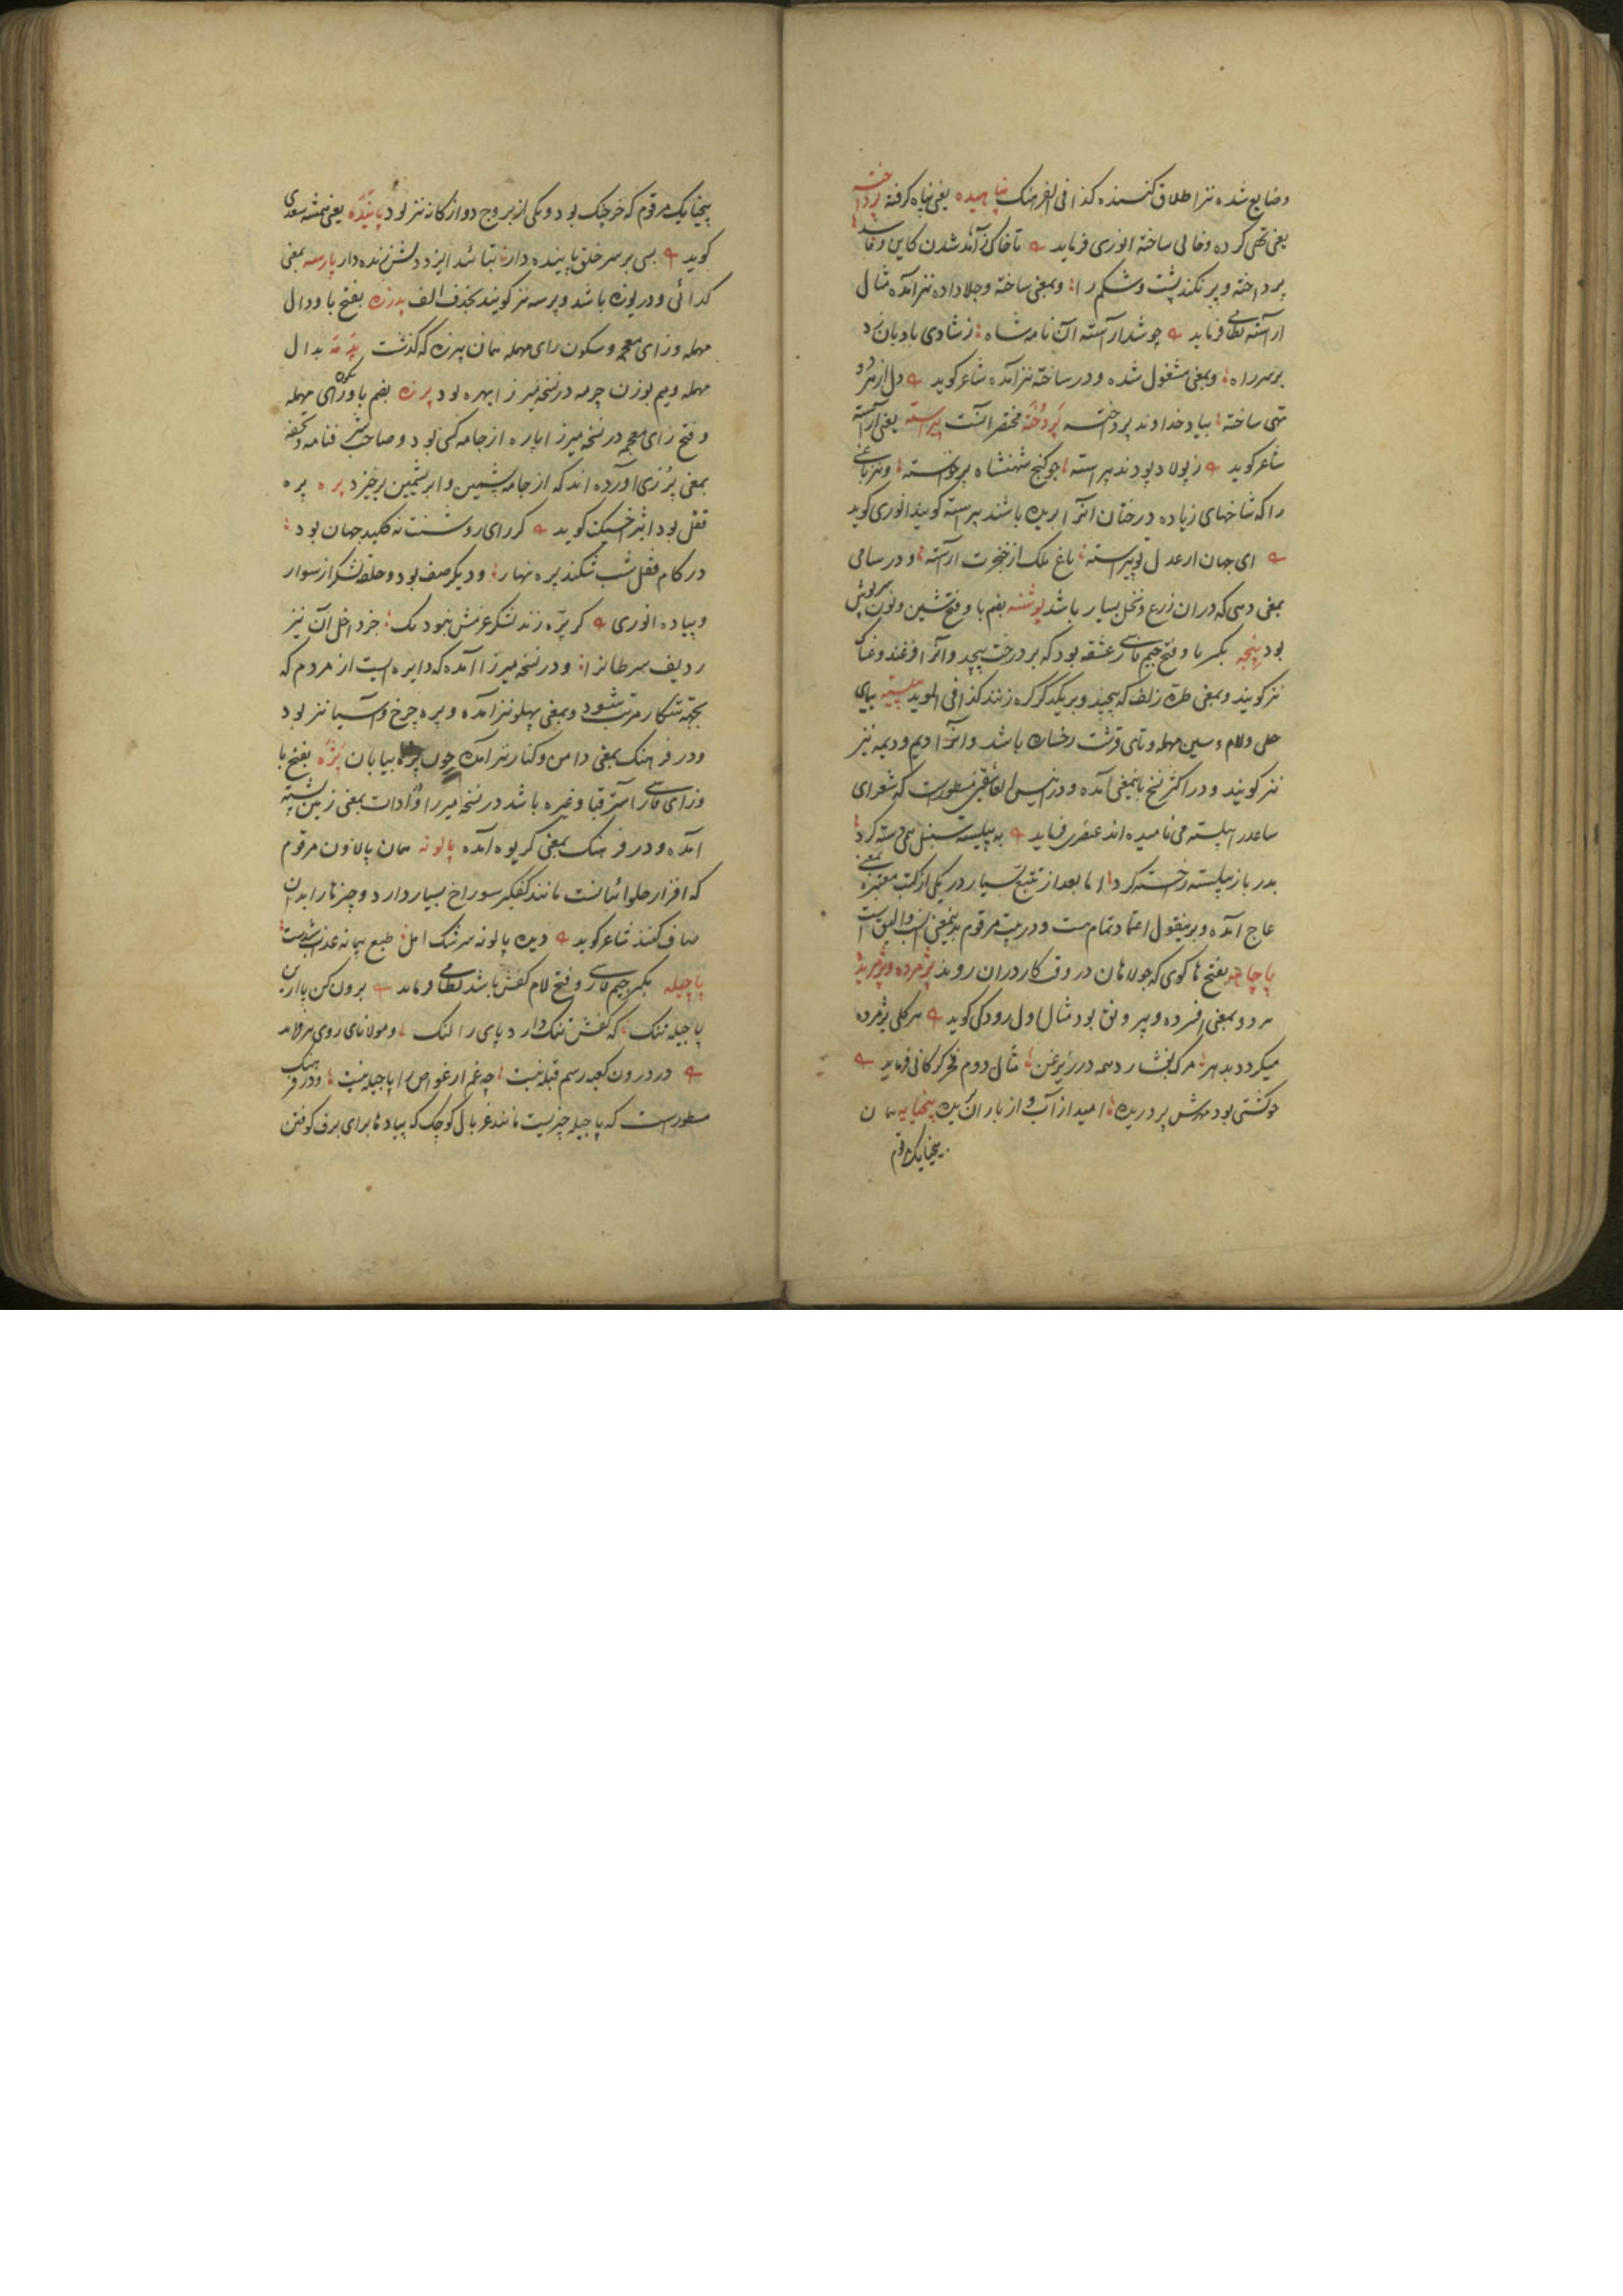 وضایع شده نیز اطلاق کنند کذا فی الفرهنک پناهیده یعنی پناه کرفته پرداخته
یعنی تهی کرده وخالی ساخته انوری فرماید تا خاک زآمد شدن کاین وفاسد
پرداخته و پر نکند پشت وشکم را وبمعنی ساخته وجلا داده نیز آمده مثال
آراسته نظامی فرماید چو شد آراسته آن نامه شاه ز شادی بادبان زد
بر سر راه وبمعنی مشغول شده ودر ساخته نیز آمده شاعر کوید دل از هر دو
تهی ساخته بیاد خداوند پرداخته پردخته مختصر آنست پیراسته یعنی آراسته
شاعر کوید ز پولاد بودند پیراسته چو کنج شهنشاه پرخواسته ونیز باغی
را که شاخهای زیاده درختان آنرا بریده باشند پیراسته کویند انوری کوید
ای جهان از عدل تو پیراسته باغ ملک از خنجرت آراسته ودر سامی
بمعنی دهی که در ان زرع ونخل بسیار باشد پوشنه بضم با وفتح شین ونون سرپوش
بود پیچه بکسر با وفتح جیم فارسی عشقه بود که بر درخت پیچد وآنرا فرغند وغساک
نیز کویند وبمعنی طره زلف که پیچند وبر یکدکر کره زنند کذا فی الموید پیلسته بیای
حطی ولام وسین مهمله وتای قرشت رخساره باشد وآنرا دیم ودیمه نیز
نیز کویند ودر اکثر نسخ باینمعنی آمده ودر انیس العاشقین مسطورست که شعرای
ساعد را پیلسته می نامیده اند عنصری فرماید به پیلسته سنبل همی دسته کرد
بدر باز پیلسته را خسته کرد اما بعد از تتبع بسیار در یکی از کتب معتبره بمعنی
عاج آمده وبرینقول اعتماد تمام هست ودر بیت مرقوم بدینمعنی انسب والیق است
پاچاهه بفتح ها کوی که جولاهان در وقت کار در ان روند پژمرده وپژمریده
هر دو بمعنی افسرده وبیرونق بود مثال اول رودکی کوید هر کلی پژمرده
میکردد بدهر مرک بفشارد همه در زیر غن مثال دوم فخر کرکانی فرماید
چو کشتی بود مهرش پژمریده امید از آب واز باران بریده پنجپایه همان
پنجپایک مرقوم
پنجپایک مرقوم که خرچنک بود ویکی از بروج دوازدکانه نیز بود پاینده یعنی همیشه سعدی
کوید بسی بر سر خلق پاینده دار بتائید ایزد دلش زنده دار پارسه بمعنی
کدائی ودریوزه باشد وپرسه نیز کویند بحذف الف پدرزه بفتح با ودال
مهمله وزای معجمه وسکون رای مهمله همان پیرزه که کذشت پدمه بدال
مهمله ومیم بوزن چرمه در نسخه میرزا بهره بود پرزه بضم با ورای مهمله
وفتح زای معجمه در نسخه میرزا پاره از جامه کهنی بود وصاحب شرفنامه وتحفه
بمعنی پرزی آورده اند که از جامه پشمین وابریشمین برخیزد پره پره
قفل بود اثیر اخسیکتی کوید کر رای روشنت نه کلید جهان بود
در کام قفل شب شکند پره نهار ودیکر صف بود وحلقه لشکر از سوار
وپیاده انوری کر پره زند لشکر عزمش نبود تک جز داخل آن نیز
ردیف سرطانرا ودر نسخه میرزا آمده که دایره ایست از مردم که
بجهت شکار مرتب شود وبمعنی پهلو نیز آمده وپره چرخ وآسیا نیز بود
ودر فرهنک بمعنی دامن وکنار نیز آمده چون پره بیابان پژه بفتح با
وزای فارسی آستر قبا وغیره باشد در نسخه میرزا ودر ادات بمعنی زمین پشته
آمده ودر فرهنک بمعنی کریوه آمده پالونه همان پالاون مرقوم
که افزار حلوائیانست مانند کفکیر سوراخ بسیار دارد وچیزها را بدان
صاف کنند شاعر کوید دیده پالونه سرشک امل طبع پیمانه عذاب شدست
پاچیله بکسر جیم فارسی وفتح لام کفش باشد نظامی فرماید برون کن پا ازین
پاچیله تنک که کفش تنک دارد پای را لنک ومولانای رومی فرماید
در درون کعبه رسم قبله نیست چه غم ار غواص را پاچیله نیست ودر فرهنک
مسطورست که پاچیله چیزیست مانند غربال کوچک که پیاده ها برای برف کوفتن